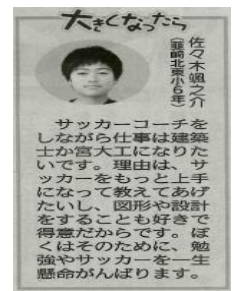 大きくなったら
佐々木颯之介
(韮崎北東小6年)
サッカーコーチを
しながら仕事は建築
士か宮大工になりた
いです。理由は、サ
ッカーをもっと上手
になって教えてあげ
たいし、図形や設計
をすることも好きで
得意だからです。ぼ
くはそのために、勉
強やサッカーを一生
懸命がんばります。